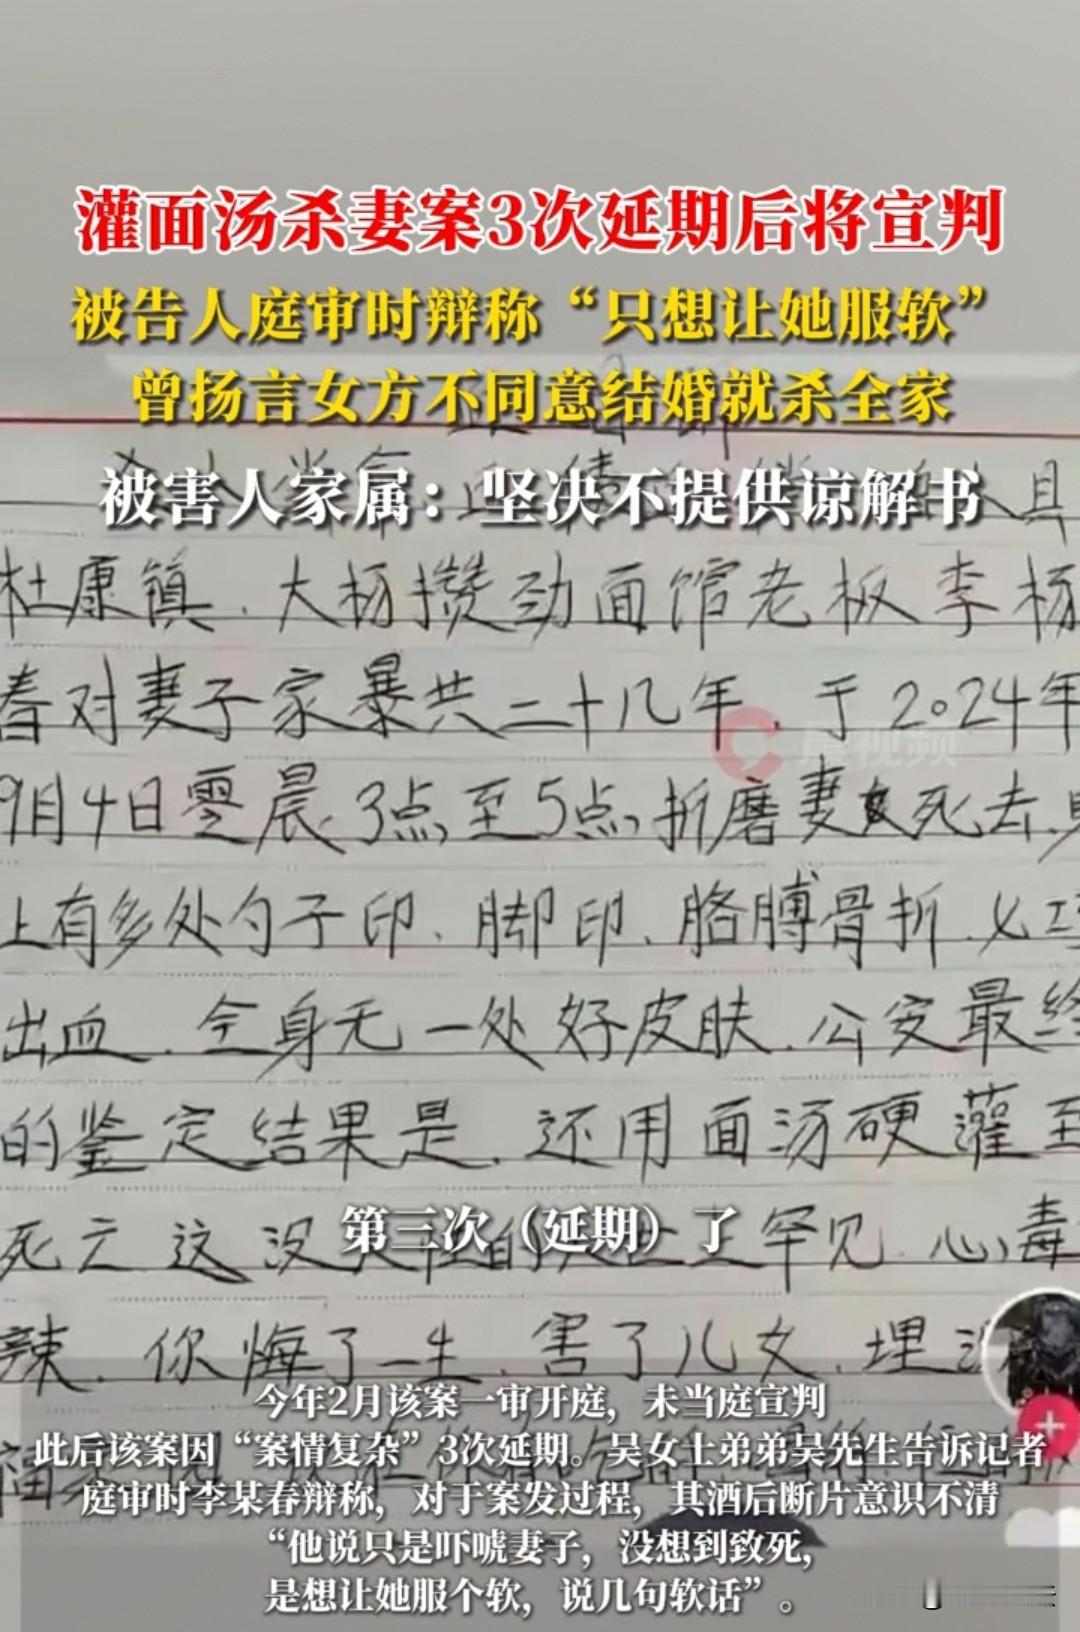 灌面汤杀妻案3次延期后将宣判
被告人庭审时辩称“只想让她服软”
曾扬言女方不同意结婚就杀全家
被害人家属：坚决不提供谅解书
具
杜康镇、大杨攒劲面馆老板李杨
春对妻子家暴共二十几年，于2024年
9月4日零晨3点至5点，折磨妻死去，身
上有多处勺子印、脚印、胳膊骨折、
出血、全身无一处好皮肤、公安最终
的鉴定结果是，还用面汤硬灌至
死亡这没 的 罕见、心毒
第三次（延期）了
辣、你悔了一生、害了儿女、埋
今年2月该案一审开庭，未当庭宣判
此后该案因“案情复杂”3次延期。吴女士弟弟吴先生告诉记者
庭审时李某春辩称，对于案发过程，其酒后断片意识不清
“他说只是吓唬妻子，没想到致死，
是想让她服个软，说几句软话”。